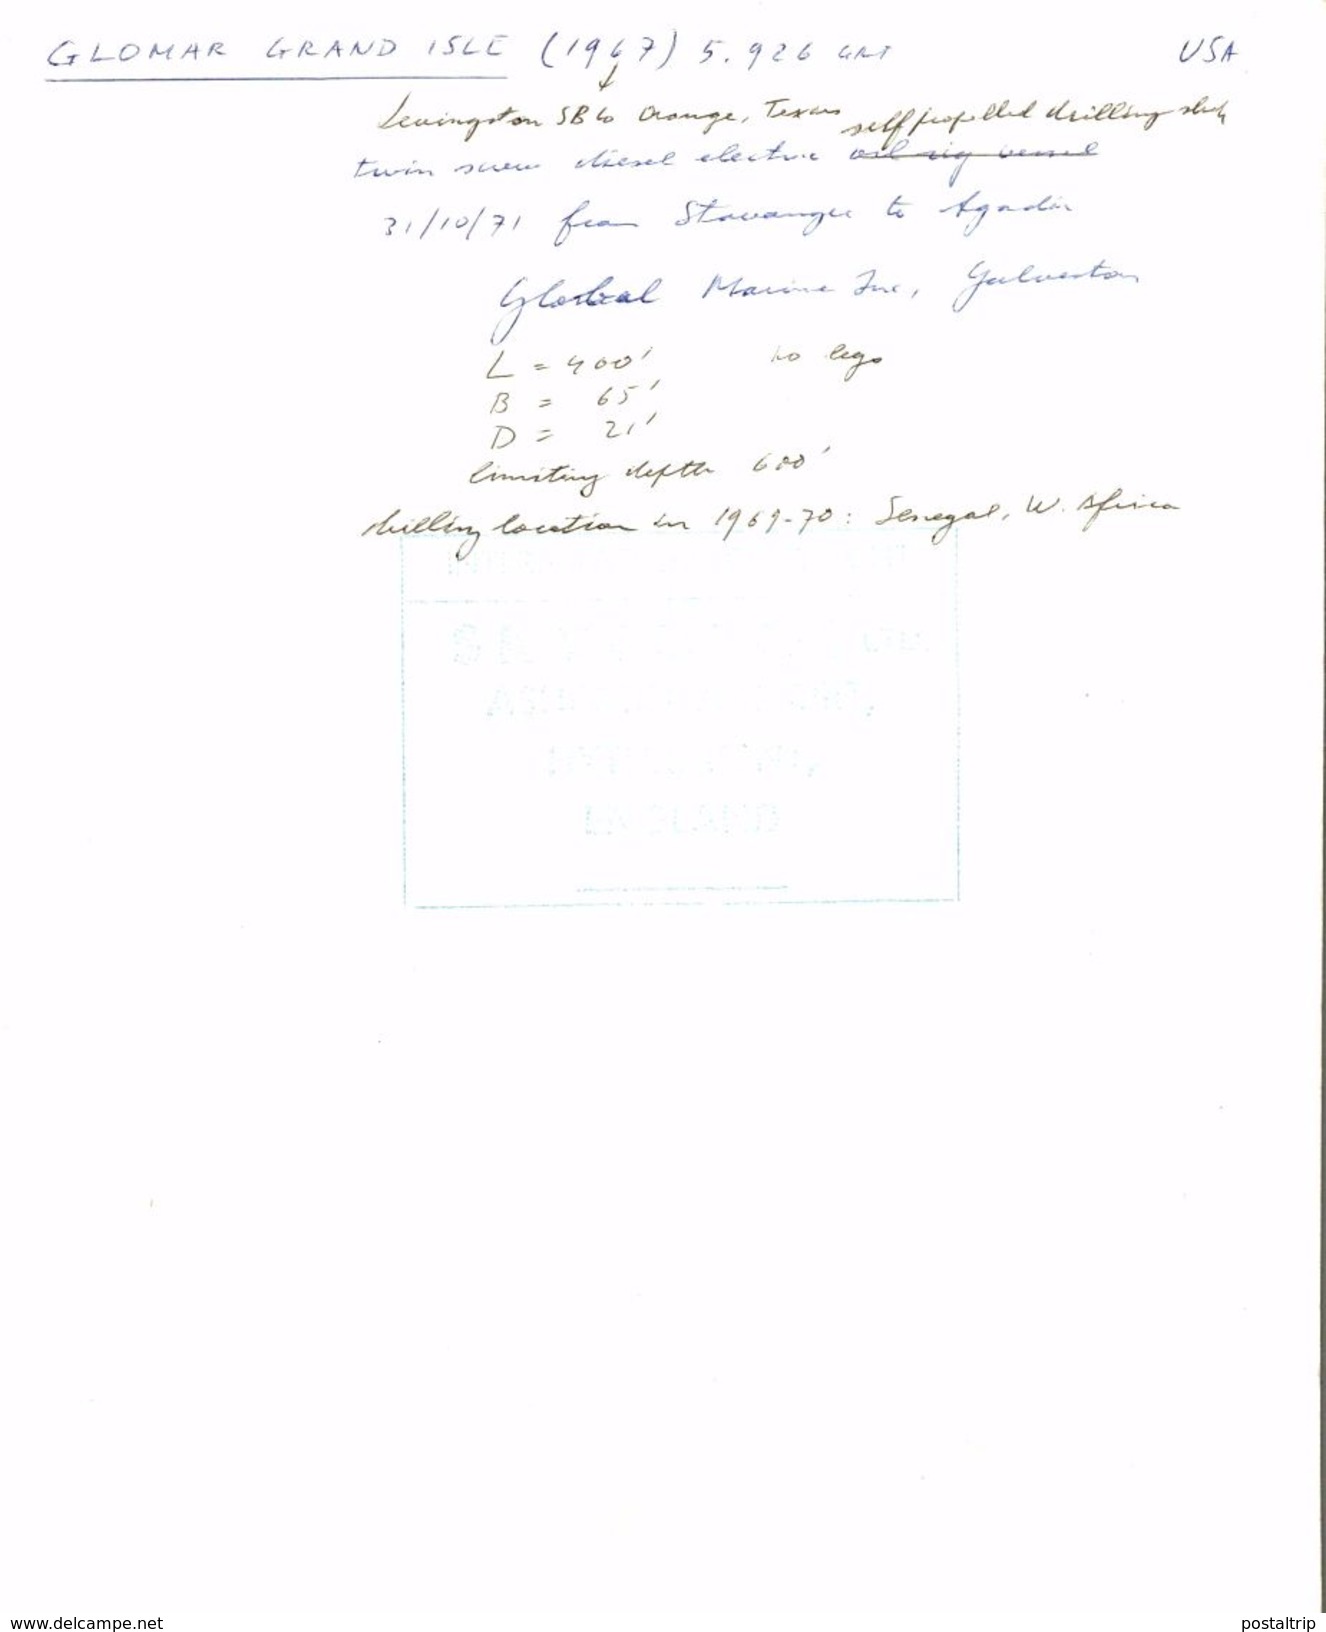 GLOMAR GRAND ISLE (1967) 5.926 GRT USA
Levingston SB Co Orange, Texas self propelled drilling ship
twin screw diesel electric oil rig vessel
31/10/71 from Stavanger to Agadir
Global Marine Inc, Galveston
L = 400' no legs
B = 65'
D = 21'
limiting depth 600'
drilling location in 1969-70: Senegal, W. Africa
LTD.
ENGLAND
www.delcampe.net
postaltrip